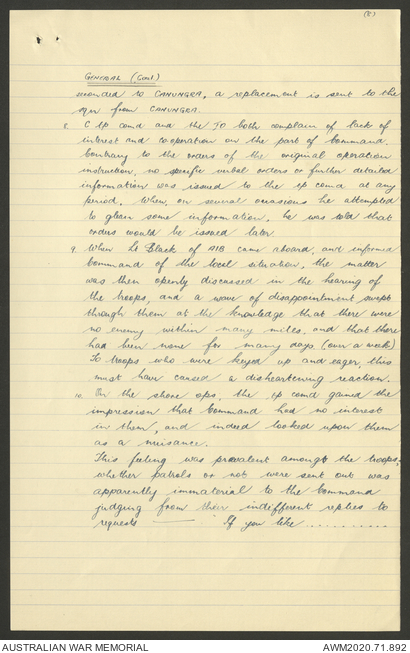 (8)
GENERAL (Cont.)
seconded to CANUNGRA, a replacement is sent to the
sqn from CANUNGRA.
8. C tp comd and the IO both complain of lack of
interest and cooperation on the part of Command.
Contrary to the orders of the original operation
instruction, no specific verbal orders or further detailed
information was issued to the tp comd at any
period. When, on several occasions he attempted
to glean some information, he was told that
orders would be issued later.
9. When Lt Black of AIB came aboard, and informed
Command of the local situation, the matter
was then openly discussed in the hearing of
the troops, and a wave of disappointment swept
through them at the knowledge that there were
no enemy within many miles, and that there
had been none for many days (over a week)
To troops who were keyed up and eager, this
must have caused a disheartening reaction.
10. On the shore ops, the tp comd gained the
impression that Command had no interest
in them, and indeed looked upon them
as a nuisance.
This feeling was prevalent amongst the troops,
whether patrols or not were sent out was
apparently immaterial to the Command
judging from their indifferent replies to
requests —— "If you like ..........
AUSTRALIAN WAR MEMORIAL
AWM2020.71.892